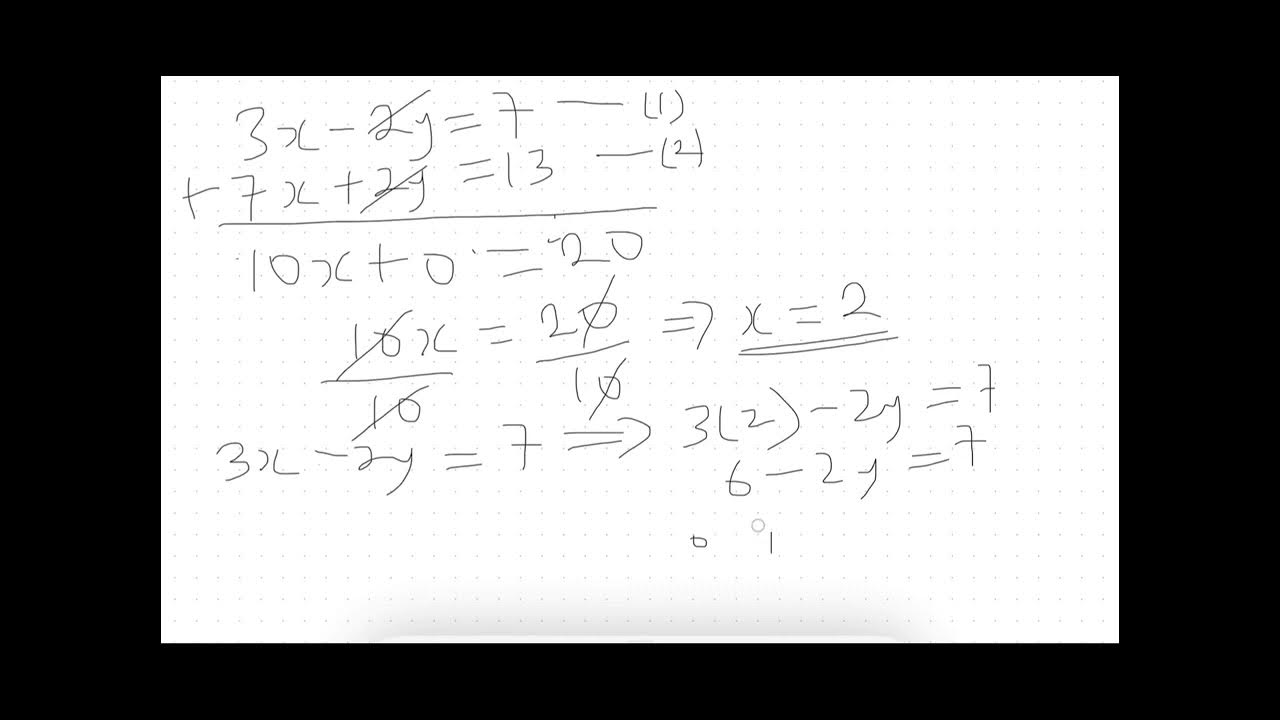 3x - 2y = 7 — (1)
+ 7x + 2y = 13 — (2)
10x + 0 = 20
10x/10 = 20/10 ⇒ x = 2
3x - 2y = 7 ⇒ 3(2) - 2y = 7
6 - 2y = 7